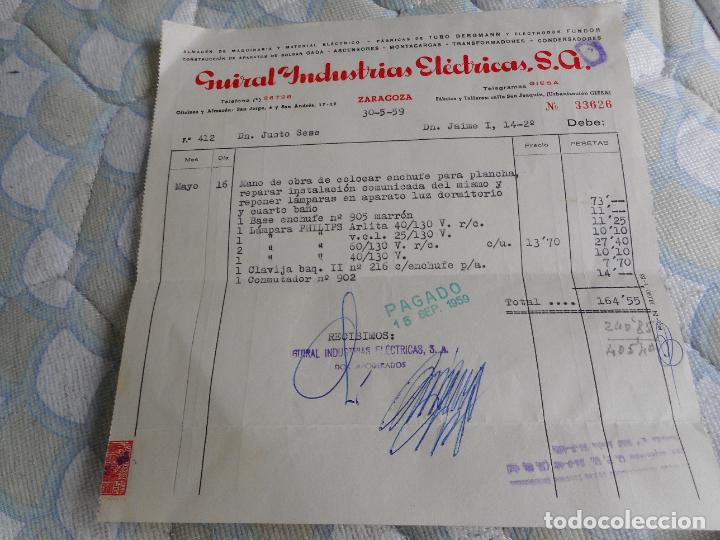 ALMACÉN DE MAQUINARIA Y MATERIAL ELÉCTRICO - FÁBRICAS DE TUBO BERGMANN Y ELECTRODOS FUNDOR
CONSTRUCCIÓN DE APARATOS DE SOLDAR GADA - ASCENSORES - MONTACARGAS - TRANSFORMADORES - CONDENSADORES
Guiral Industrias Eléctricas, S.A.
Teléfono (*) 26726
Telegramas GIESA
Oficinas y Almacén: San Jorge, 4 y San Andrés, 17-19
ZARAGOZA
Fábrica y Talleres: calle San Joaquín, (Urbanización GIESA)
30-5-59
Nº 33626
F.ª 412 Dn. Justo Sese Dn. Jaime I, 14-2º Debe:
Mes Día Precio PESETAS
Mayo 16 Mano de obra de colocar enchufe para plancha,
reparar instalación comunicada del mismo y
reponer lámparas en aparato luz dormitorio
y cuarto baño 73'—
1 Base enchufe nº 905 marrón 11'—
1 Lámpara PHILIPS Arlita 40/130 V. r/c. 11'25
1 " " v.c.l. 25/130 V. 10'10
2 " " 60/130 V. r/c. c/u. 13'70 27'40
1 " " 40/130 V. 10'10
1 Clavija baq. II nº 216 c/enchufe p/a. 7'70
1 Conmutador nº 902 14'—
Total .... 164'55
PAGADO
15 SEP. 1959
240'85
405'40
RECIBIMOS:
GUIRAL INDUSTRIAS ELÉCTRICAS, S. A.
DOS APODERADOS
todocoleccion
todocoleccion.net